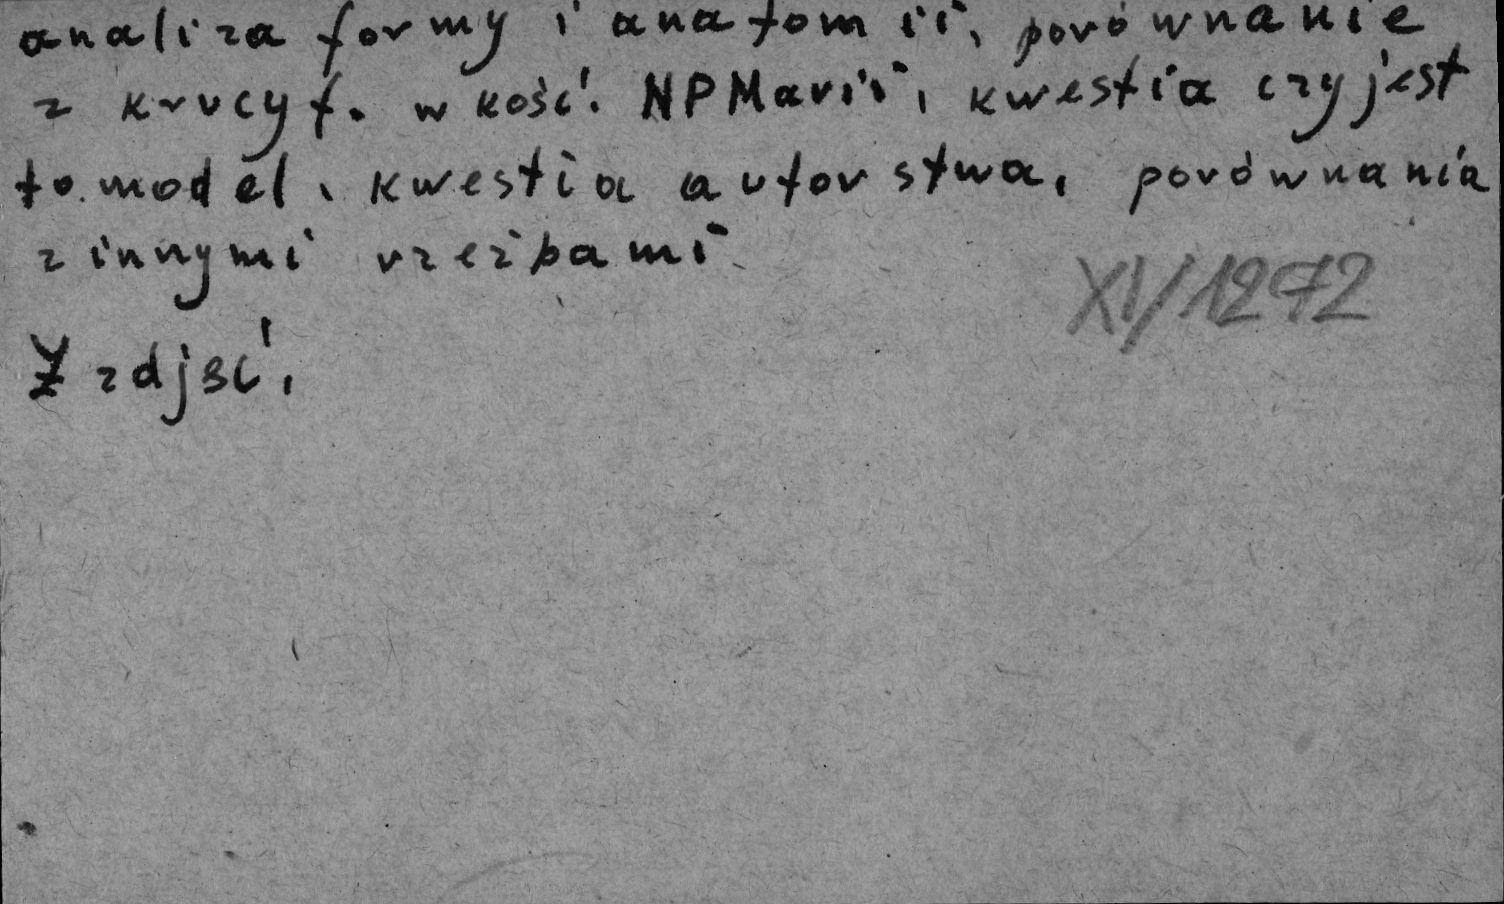 analiza formy i anatomii, porównanie
z krucyf. w kość. NPMarii, kwestia czy jest
to model, kwestia autorstwa, porównania
z innymi rzeźbami
XV/1272
zdjęć,